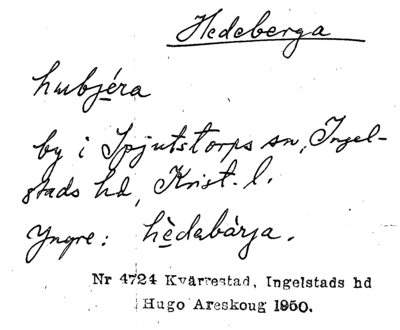 Hedeberga
hubjéra
by i Spjutstorps sn, Ingel-
stads hd, Krist. l.
Yngre: hèdabàrja.
Nr 4724 Kvärrestad, Ingelstads hd
Hugo Areskoug 1950.